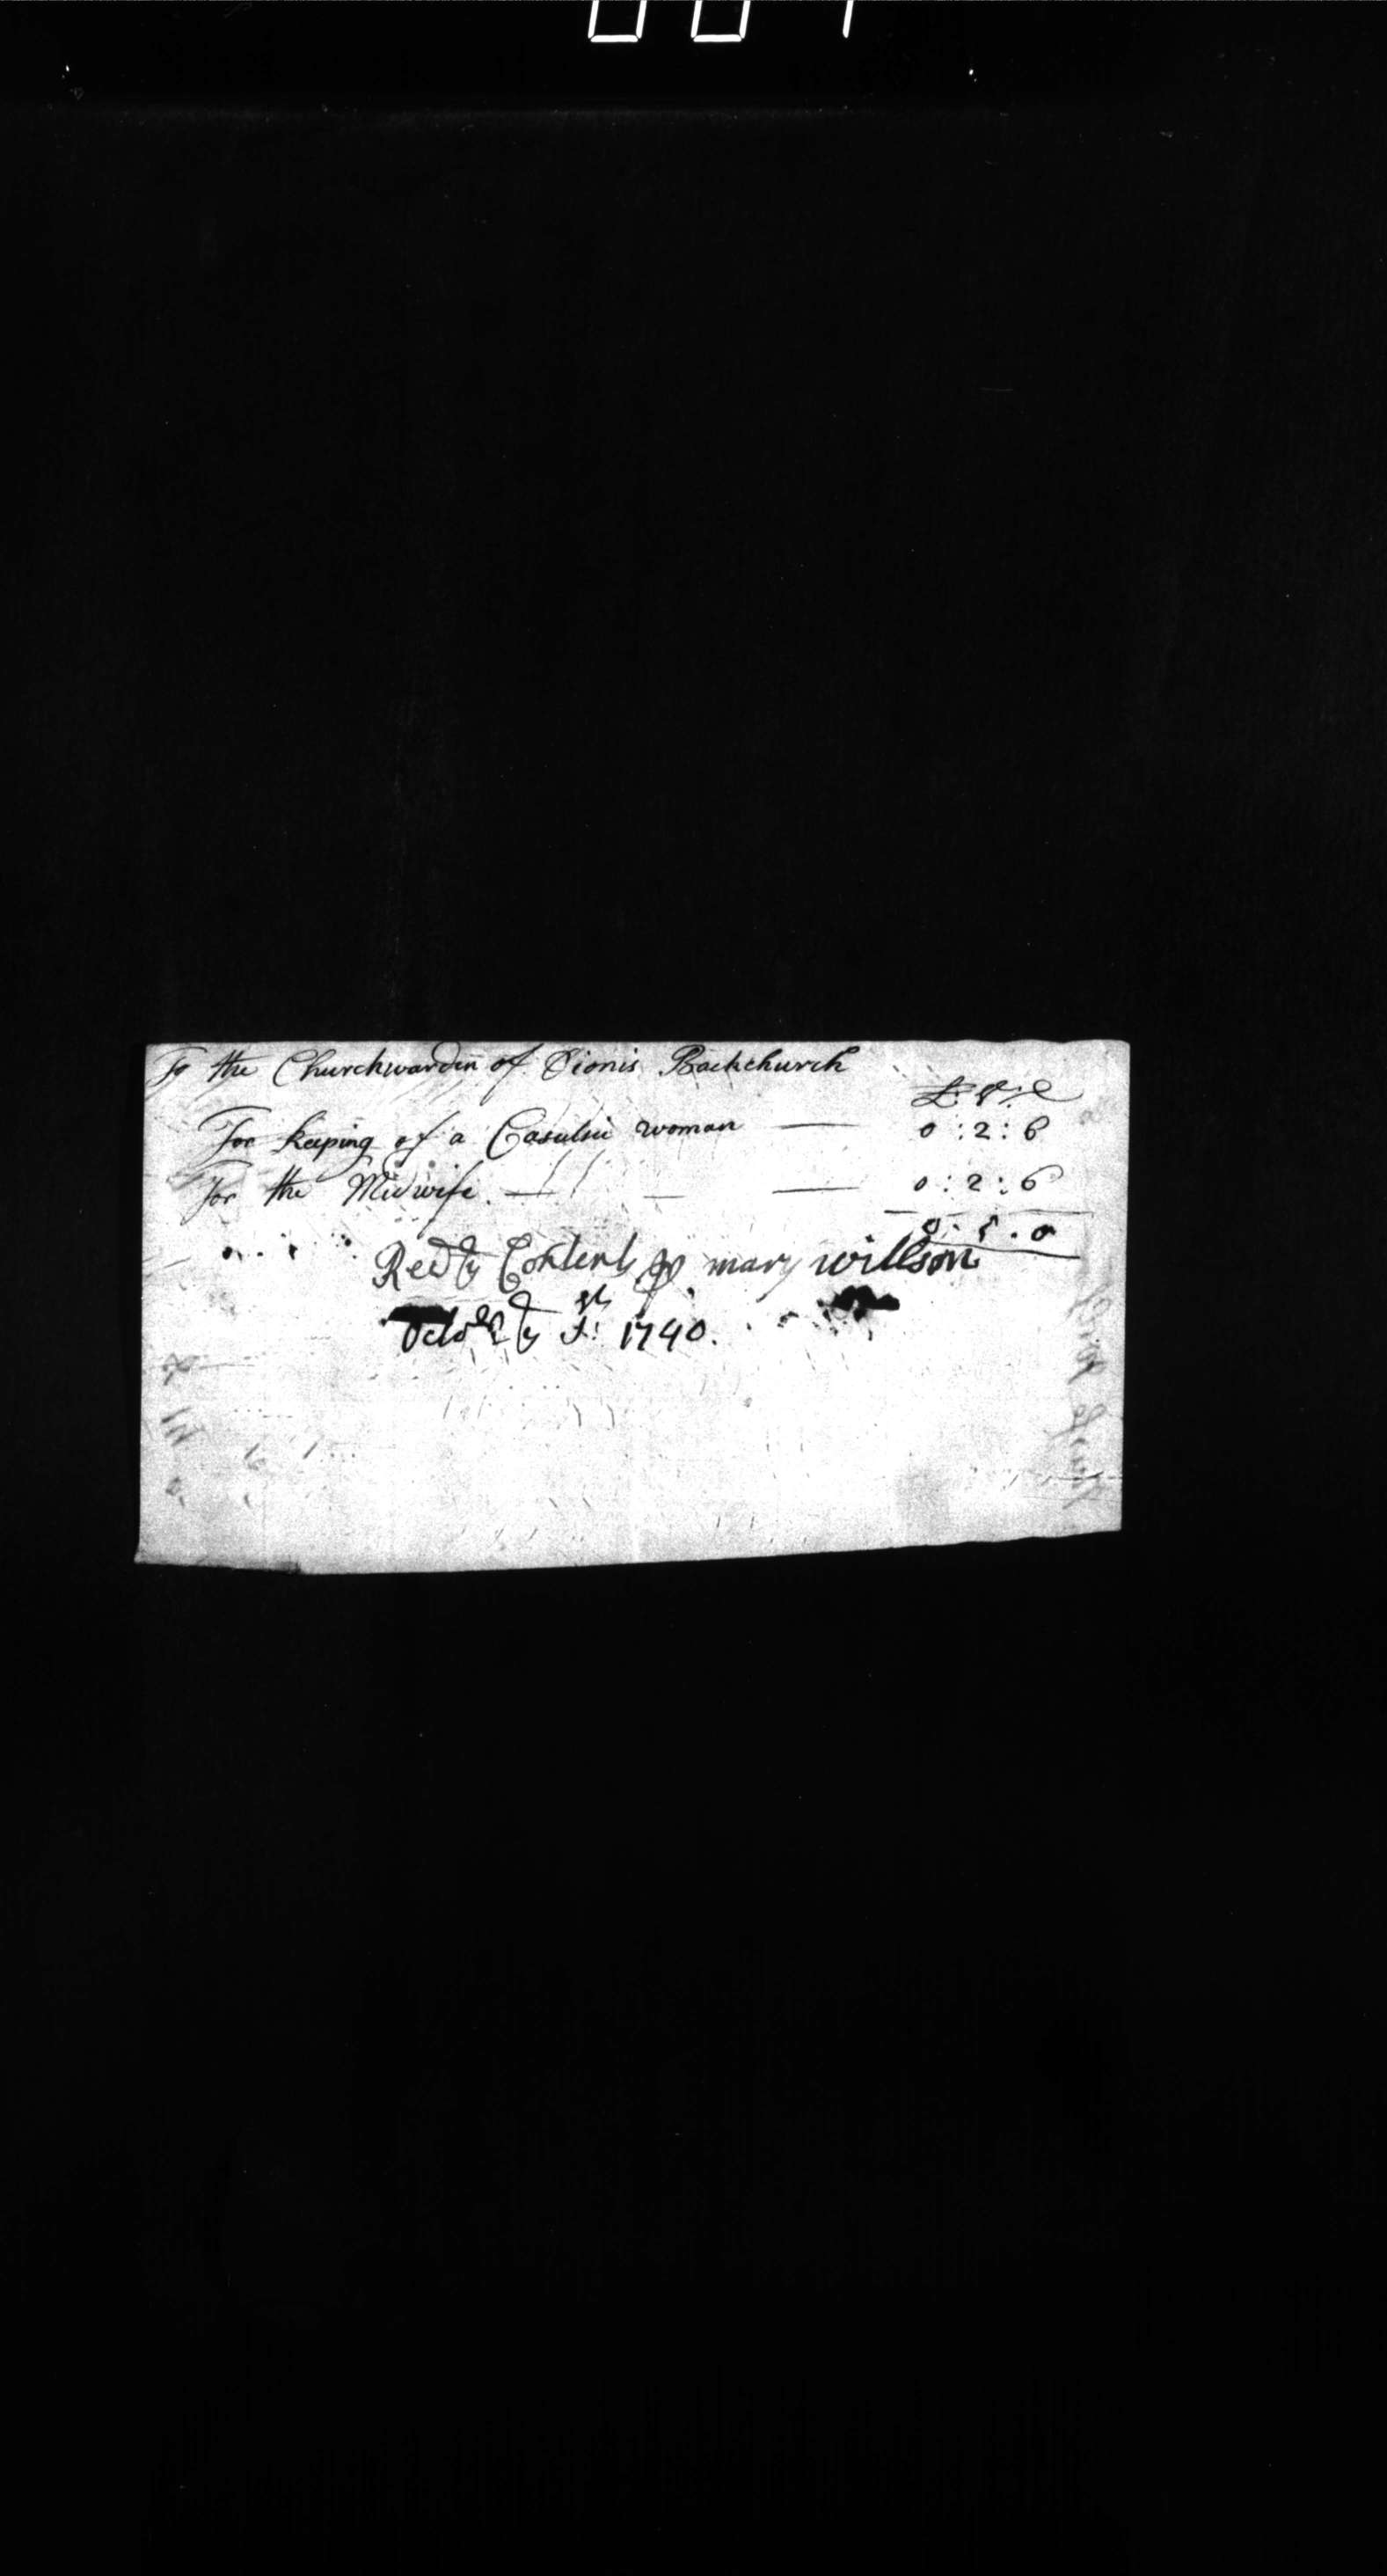 To the Churchwarden of Dionis Backchurch
£: s: d
For keeping of a Casulue woman — 0 : 2 : 6
For the Midwife. — — — 0 : 2 : 6
0 . 5 . 0
Recd ye Contents p mary willson
Octobr ye 1st: 1740.